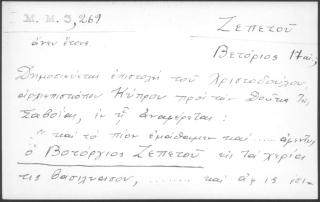 M. M. 3, 269
Ζεπετοῦ
ἄνευ ἔτους
Βετόριος 17 αἰ.;
Δημοσιεύεται ἐπιστολὴ τοῦ Χριστοδούλου
ἀρχιεπισκόπου Κύπρου πρὸς τὸν Δοῦκα τῆς
Σαβοίας, ἐν ᾗ ἀναφέρεται:
"καὶ τὸ πῖον ἐμάθαμεν καὶ.....
ὁ Βοτόργιος Ζεπετοῦ εἰς τὰ χερία
τις βασιλείασου, ........ καὶ